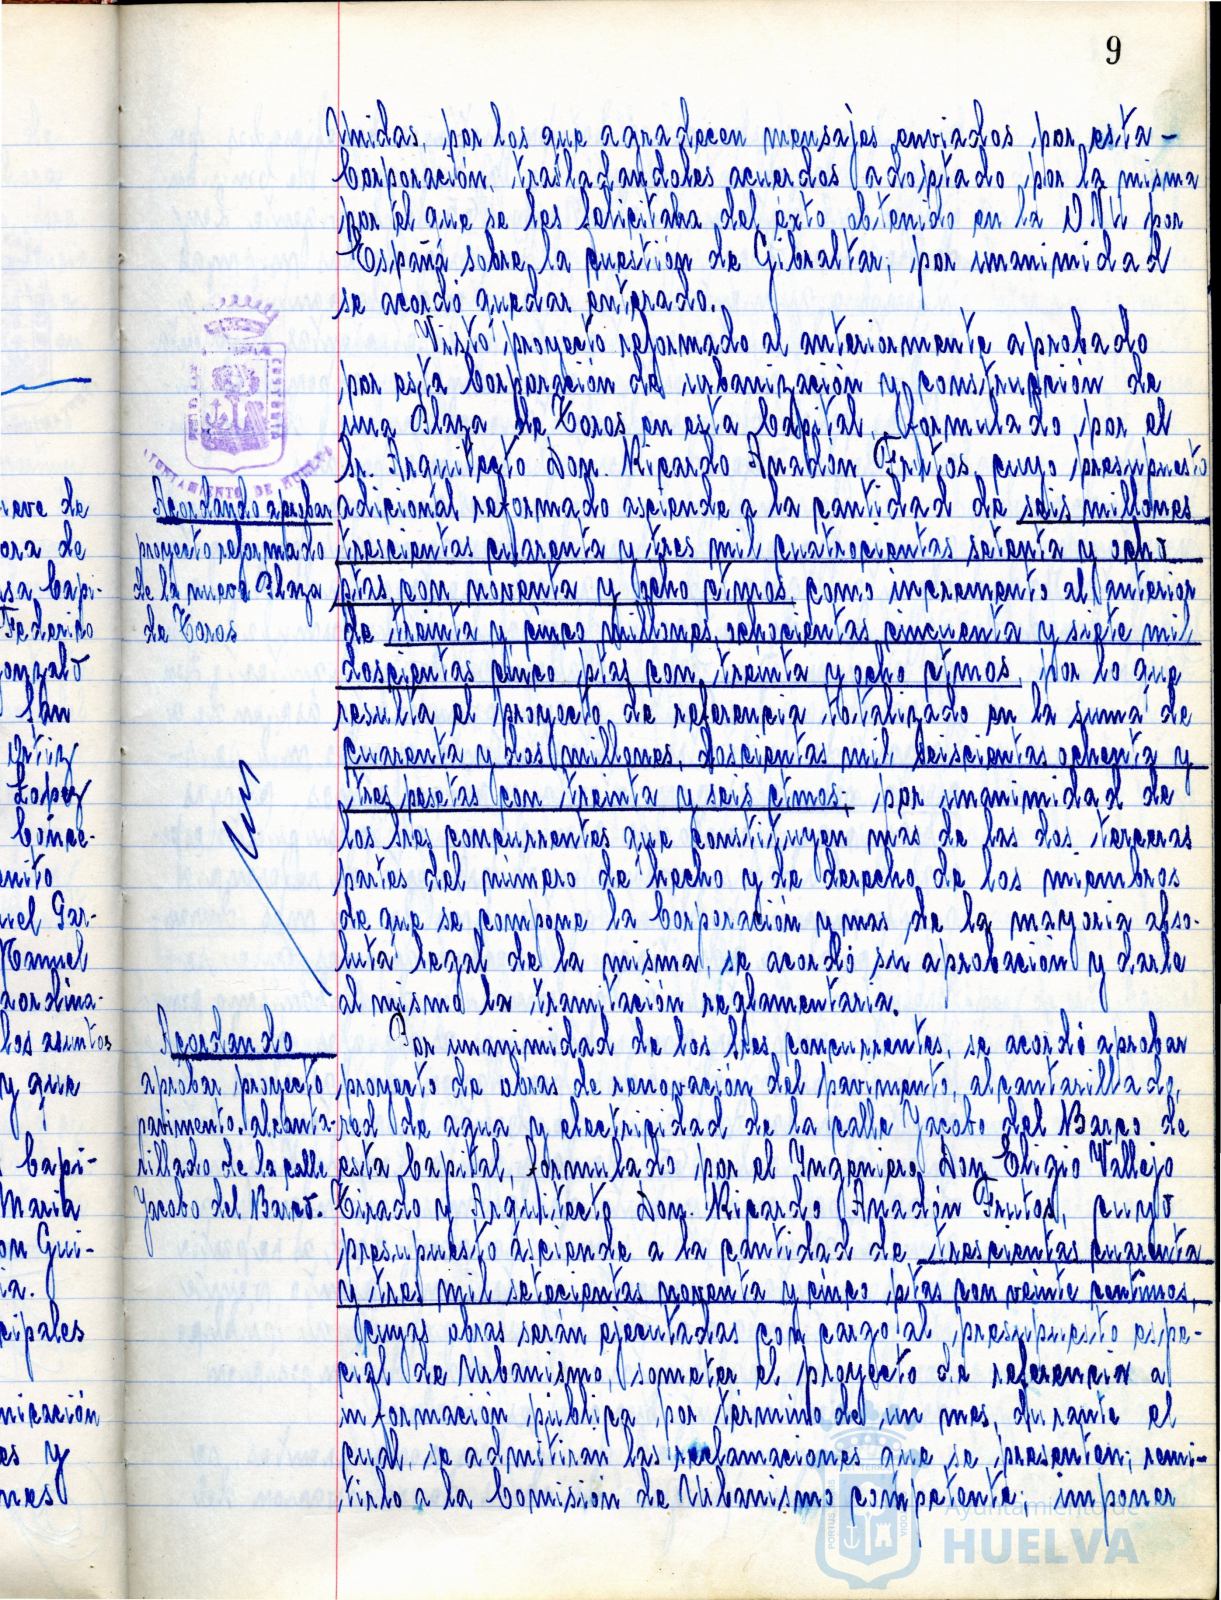 9
Unidas, por los que agradecen mensajes enviados por esta -
Corporación, trasladandoles acuerdos adoptado por la misma
por el que se les felicitaba del éxto obtenido en la O.N.U por
España sobre la cuestión de Gibraltar, por unanimidad
se acordó quedar enterado.
Visto proyecto reformado al anteriormente aprobado
por esta Corporación de urbanización y construcción de
una Plaza de Toros en esta Capital, formulado por el
Sr. Arquitecto Don. Ricardo Anadón Frutos, cuyo presupuesto
adicional reformado asciende a la cantidad de seis millones
trescientas cuarenta y tres mil cuatrocientas setenta y ocho
ptas con noventa y ocho ctmos, como incremento al anterior
de treinta y cinco millones, ochocientas cincuenta y siete mil
doscientas cinco ptas con treinta y ocho ctmos, por lo que
resulta el proyecto de referencia totalizado en la suma de
cuarenta y dos millones, doscientas mil seiscientas ochenta y
tres pesetas con treinta y seis ctmos; por unanimidad de
los sres concurrentes que constituyen mas de las dos terceras
partes del número de hecho y de derecho de los miembros
de que se compone la Corporación y mas de la mayoria abso-
luta legal de la misma, se acordó su aprobación y darle
al mismo la tramitación reglamentaria.
Por unanimidad de los sres concurrentes, se acordó aprobar
proyecto de obras de renovación del pavimento, alcantarillado,
red de agua y electricidad de la calle Jacobo del Barco de
esta Capital, formulado por el Ingeniero Don Eligio Vallejo
Tirado y Arquitecto Don. Ricardo Anadón Frutos, cuyo
presupuesto asciende a la cantidad de trescientas cuarenta
y tres mil setecientas noventa y cinco ptas con veinte centimos,
cuyas obras serán ejecutadas con cargo al presupuesto espe-
cial de Urbanismo, someter el proyecto de referencia a
información pública por término de un mes, durante el
cual, se admitirán las reclamaciones que se presenten; remi-
tirlo a la Comisión de Urbanismo competente; imponer
Acordando aprobar
proyecto reformado
de la nueva Plaza
de Toros
Acordando
aprobar proyecto
pavimento, alcanta-
rillado de la calle
Jacobo del Barco.
AYUNTAMIENTO DE HUELVA
nueve de
ora de
sa Capi-
Federico
Gonzalo
San
Ortiz
Lopez
Conce-
enito
uel Gar-
Manuel
aordina-
los asuntos
y que
Capi-
Maria
on Gui-
ia.
cipales
nicación
es y
nes
Ayuntamiento de
HUELVA